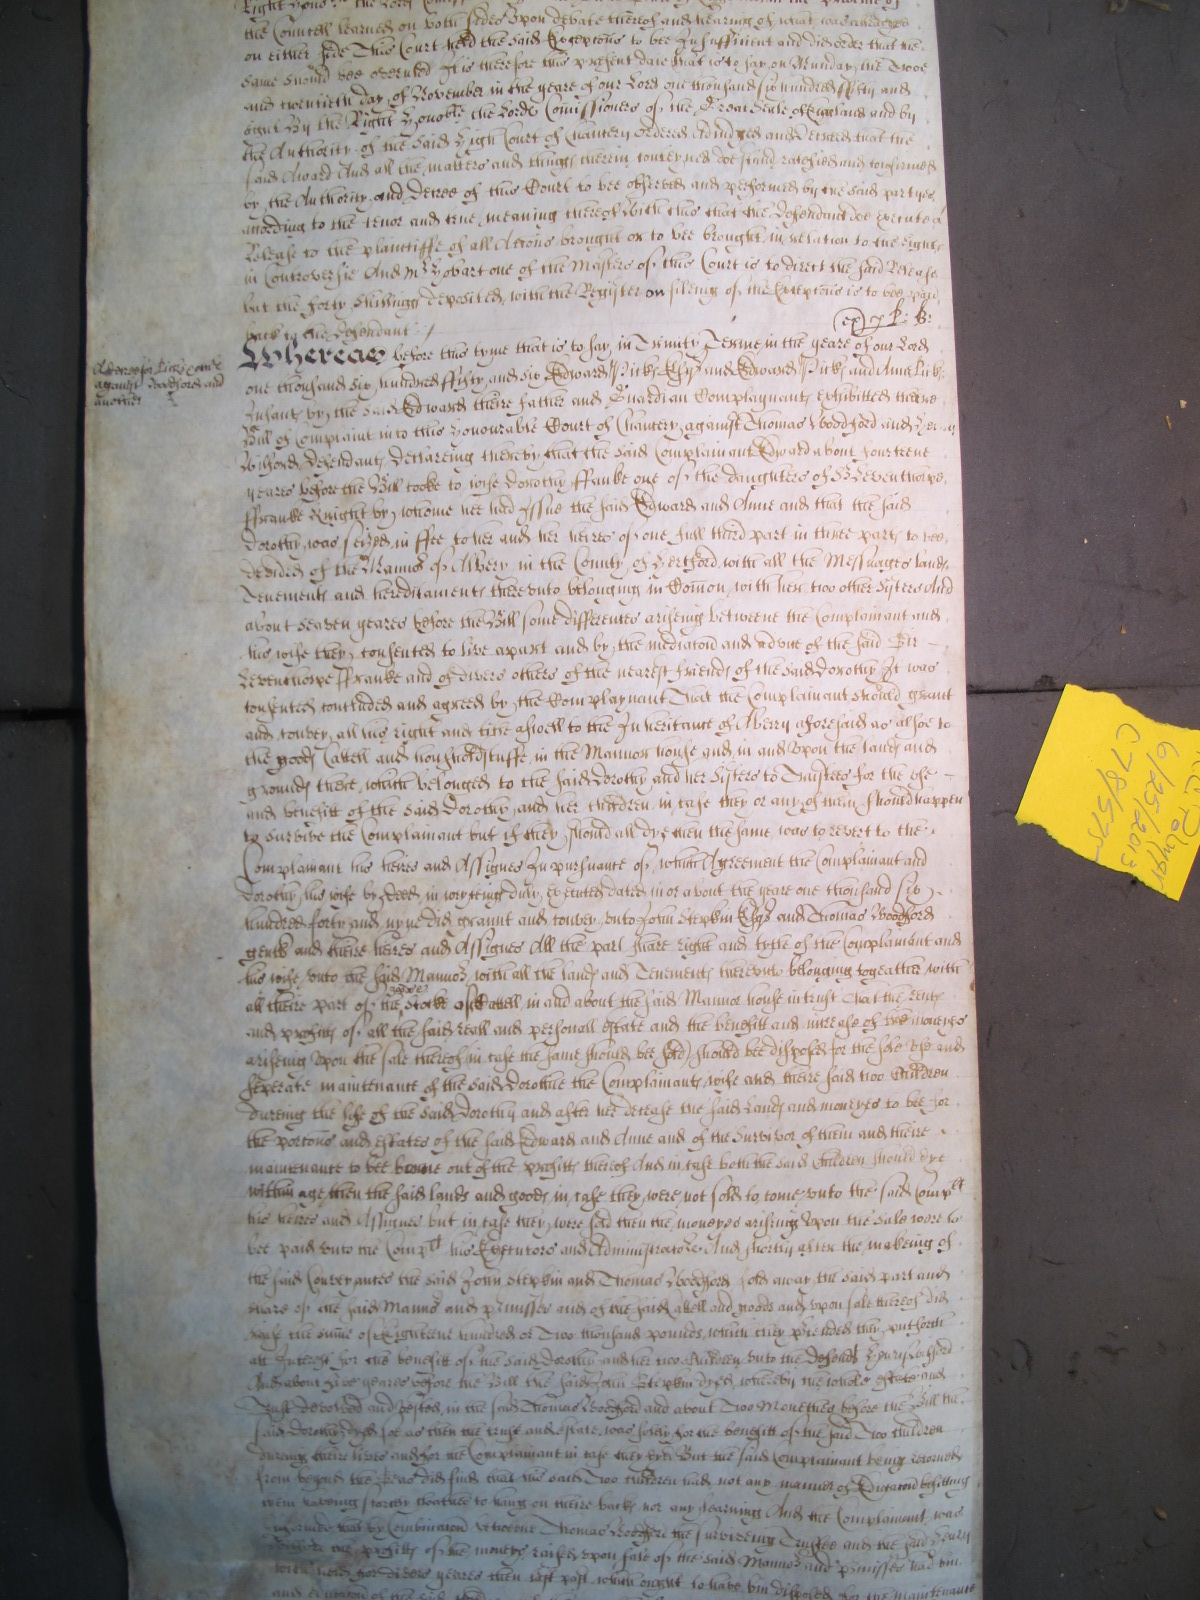 Right the Lord
the Councell learned on both sides Upon debate thereof and hearing of what was alleadged
on either side This Court held the said Exceptons to bee Insufficient and did order that the
same should bee overruled It is therefore this present daie that is to say on Munday the Twoe
and twentieth day of November in the yeare of our Lord one thousand six hundred fifty and
eight By the Right Honoble the Lords Comissioners of the Greate Seale of England and by
the Authority of the said High Court of Chancery ordered Adiudged and Decreed that the
said Award And all the matters and things therein conteyned doe stand ratefied and confirmed
by the Authority and Decree of this Court to bee observed and performed by the said partyes
according to the tenor and true meaning thereof With this that the Defendant doe execute a
Release to the plaintiffe of all Actions brought or to bee brought in relation to the rights
in Controversie And Mr Hobart one of the Masters of this Court is to direct the said Release
but the forty shillings deposited with the Register on fileing of the Exceptons is to bee paid
back to the Defendant
Whereas before this tyme that is to say in Trinity Terme in the yeare of our Lord
against Woodford and
another
one thousand six hundred fifty and six Edward Esqr and Edward and Anne
Infants by the said Edward theire father and Guardian Complaynants exhibitted theire
Bill of Complaint into this Honourable Court of Chancery against Thomas Woodford and
Defendants Declareing thereby that the said Complainant Edward about fourteene
yeares before the Bill tooke to wife Dorothy ffranke one of the daughters of Sr Leventhorpe
ffranke Knight by whome hee had Issue the said Edward and Anne and that the said
Dorothy was seized in ffee to her and her heires of one full third part in three parts to bee
devided of the Mannor of Albery in the County of Hertford with all the Messuages lands
Tenements and hereditaments thereunto belonging in Comon with her two other Sisters And
about seaven yeares before the Bill some differences ariseing betweene the Complainant and
his wife they consented to live apart and by the mediacon and advice of the said Sir
Leventhorpe ffranke and of divers others of the nearest friends of the said Dorothy It was
consented concluded and agreed by the Complaynant That the Complainant should grant
and convey all his right and title aswell to the Inheritance of Alberry aforesaid as alsoe to
the goods Cattell and houshouldstuffe in the Mannor house and in and upon the lands and
grounds there which belonged to the said Dorothy and her Sisters to Trustees for the use
and benefitt of the said Dorothy and her children in case they or any of them should happen
to survive the Complainant but if they should all dye then the same was to revert to the
Complainant his heires and Assignes In pursuance of which Agreement the Complainant and
Dorothy his wife by deed in writeing duly executed dated in or about the yeare one thousand six
hundred forty and nyne did graunt and convey unto John Stepkin Esqr and Thomas Woodford
gents and theire heires and Assignes All the part share right and tytle of the Complainant and
his wife unto the said Mannor with all the lands and Tenements thereunto belonging togeather with
all theire part of the Stocke of Cattell in and about the said Mannor house in trust That the rents
and proffitts of all the said reall and personall estate and the benefitt and increase of the moneyes
ariseing upon the sale thereof in case the same should bee sold should bee disposed for the sole use and
seperate maintenance of the said Dorothie the Complainants wife and theire said two Children
dureing the life of the said Dorothy and after her decease the said Lands and moneyes to bee for
the portons and estates of the said Edward and Anne and of the Survivor of them and theire
maintenance to bee borne out of the proffitts thereof And in case both the said Children should dye
within age then the said lands and goods in case they were not sold to come unto the said Complt
his heires and Assignes but in case they were sold then the moneyes ariseing upon the sale were to
bee paid unto the Complt his Executors and Administrators And shortly after the makeing of
the said Conveyances the said John Stepkin and Thomas Woodford sold away the said part and
share of the said Mannor and premisses and of the said Cattell and goods and upon sale thereof did
raise the sume of Eighteene hundred or Two thousand pounds which they pretended they put forth
att Interest for the benefitt of the said Dorothy and her two Children unto the Defendt Henry
And about five yeares before the Bill the said John Stepkin dyed whereby the whole estate and
Trust devolved and vested in the said Thomas Woodford and about Two Monethes before the Bill the
said Dorothy dyed soe as then the trust and estate was solely for the benefitt of the said Two children
dureing theire lives and for the Complainant in case they dyed But the said Complainant being returned
from beyond the Seas did find that his said Two children had not any manner of Educacon befitting
them haveing scarce cloathes to hang on theire backs nor any learning And the Complainant was
informed that by Combinacon betweene Thomas Woodford the surviveing Trustee and the said Henry
the proffitts of the moneys raised upon sale of the said Mannor and premisses had bin
for divers yeares then last past which ought to have bin disposed for the maintenance
C78/575
6/25/2013